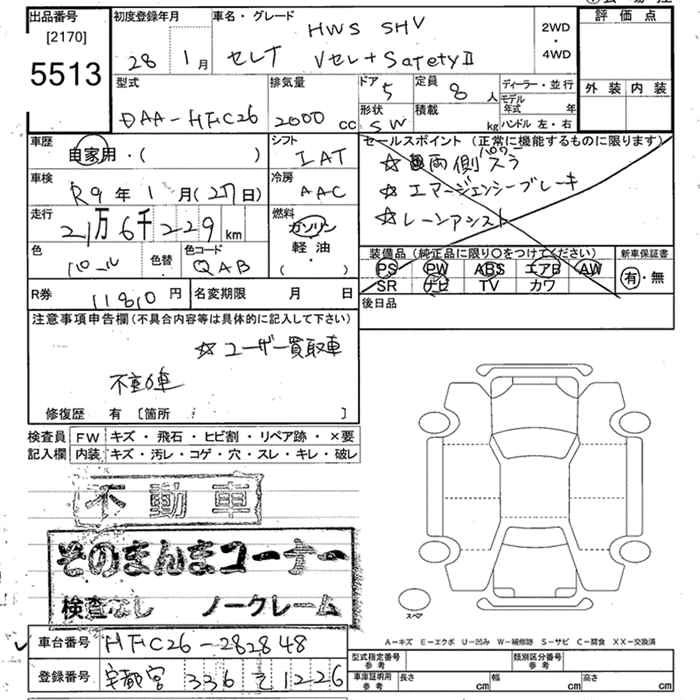 出品番号
[2170]
5513
初度登録年月
28 1月
車名・グレード
HWS SHV
セレナ Vセレ+SafetyⅡ
2WD
・
4WD
評価点
外装 内装
型式
DAA-HFC26
排気量
2000 cc
ドア 5
定員 8人
形状 SW
積載 kg
ディーラー・並行
モデル年式 年
ハンドル 左・右
車歴
自家用・( )
シフト
IAT
セールスポイント (正常に機能するものに限ります)
☆両側パワスラ
☆エマージェンシーブレーキ
☆レーンアシスト
車検
R9年1月(27日)
冷房
AAC
走行
21万6千229km
燃料
ガソリン
軽油・
( )
色
パール
色替
色コード
QAB
装備品 (純正品に限り〇をつけてください)
PS PW ABS エアB AW
SR ナビ TV カワ
新車保証書
有・無
R券 11810円
名変期限 月 日
後日品
注意事項申告欄 (不具合内容等は具体的に記入して下さい)
☆ユーザー買取車
不動車
修復歴 有 [箇所 ]
検査員 FW キズ・飛石・ヒビ割・リペア跡・×要
記入欄 内装 キズ・汚レ・コゲ・穴・スレ・キレ・破レ
不動車
そのまんまコーナー
検査なし ノークレーム
スペア
A-キズ E-エクボ U-凹み W-補修跡 S-サビ C-腐食 XX-交換済
車台番号 HFC26-282848
登録番号 宇都宮 336 そ 1226
型式指定番号 参考
類別区分番号 参考
車庫証明用 参考 長さ cm 幅 cm 高さ cm